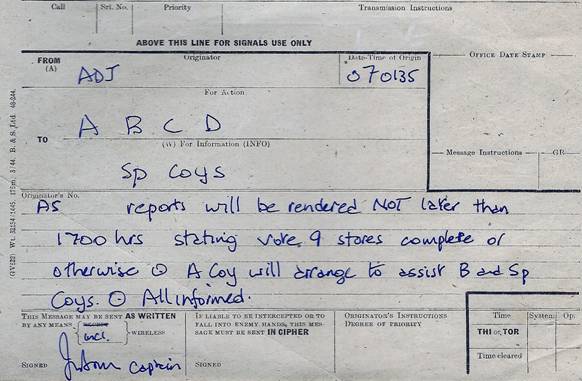 Call Srl. No. Priority Transmission Instructions
ABOVE THIS LINE FOR SIGNALS USE ONLY
FROM (A) Originator Date-Time of Origin OFFICE DATE STAMP
ADJ 070135
For Action
TO A B C D
(W) For Information (INFO)
Message Instructions GR
Sp Coys
Originator's No.
AS reports will be rendered NOT later than
1700 hrs stating vote 9 stores complete or
otherwise ⊙ A Coy will arrange to assist B and Sp
Coys. ⊙ All informed.
THIS MESSAGE MAY BE SENT AS WRITTEN
BY ANY MEANS incl. WIRELESS
SIGNED Captain
IS LIABLE TO BE INTERCEPTED OR TO
FALL INTO ENEMY HANDS, THIS MES-
SAGE MUST BE SENT IN CIPHER
SIGNED
ORIGINATOR'S INSTRUCTIONS
DEGREE OF PRIORITY
Time System Op.
THI or TOR
Time cleared